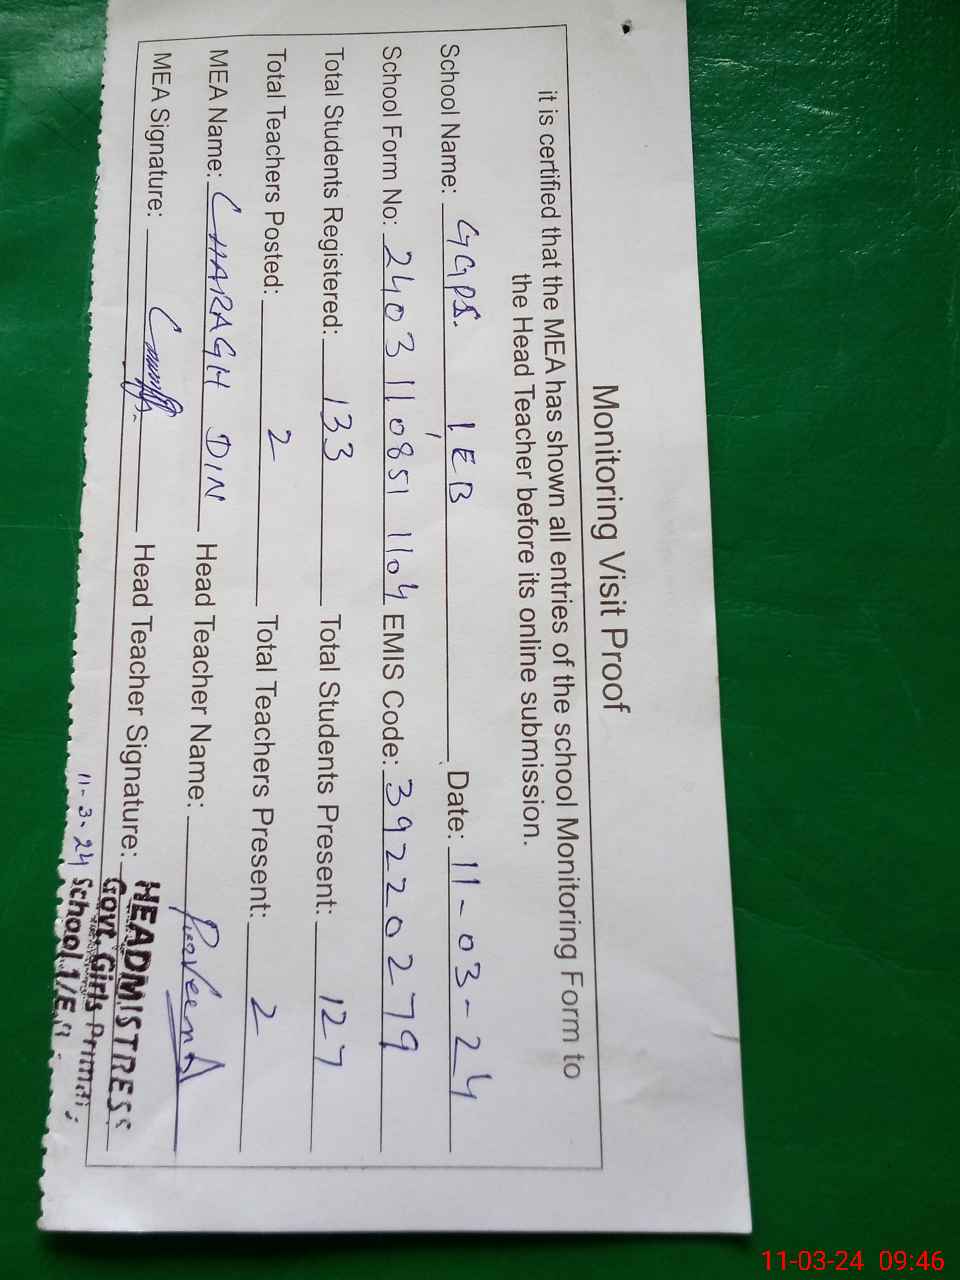 Monitoring Visit Proof
it is certified that the MEA has shown all entries of the school Monitoring Form to
the Head Teacher before its online submission.
School Name: GGPS. 1EB Date: 11-03-24
School Form No: 24031108511104 EMIS Code: 39220279
Total Students Registered: 133 Total Students Present: 127
Total Teachers Posted: 2 Total Teachers Present: 2
MEA Name: CHARAGH DIN Head Teacher Name: Parveen A
MEA Signature: Head Teacher Signature:
HEADMISTRESS
Govt. Girls Primary
11-3-24 School 1/E.B
11-03-24 09:46